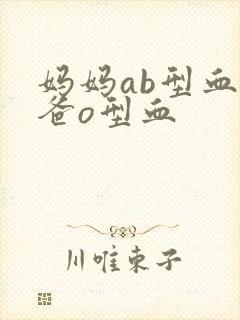 妈妈ab型血
爸o型血
川唯东子